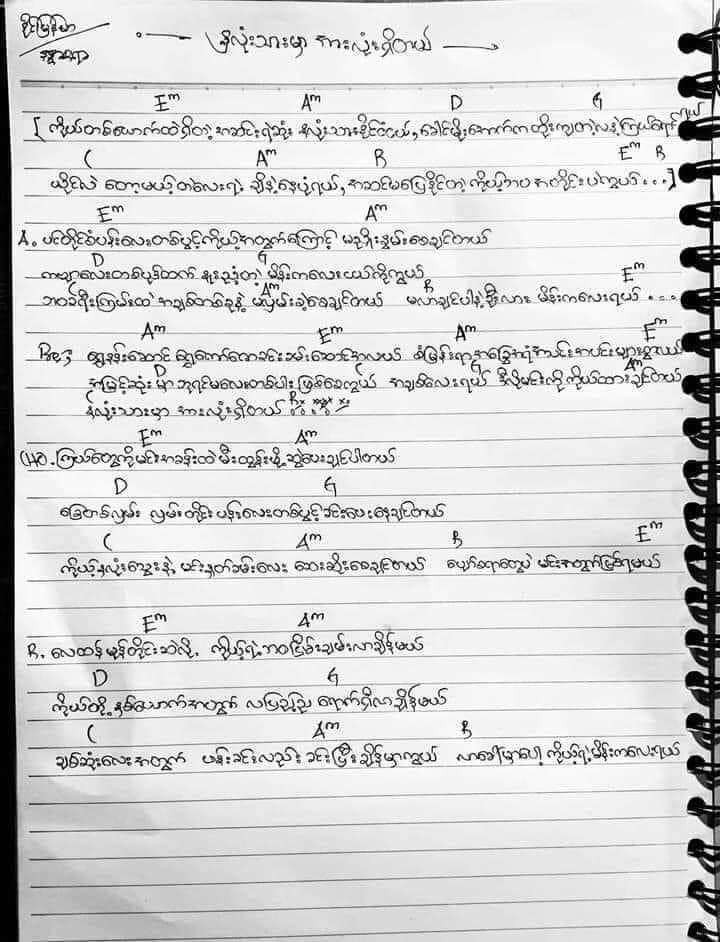 နှလုံးသားမှာ အားလုံးရှိတယ်
Em Am D G
[ ကိုယ်တစ်ယောက်ထဲရှိတဲ့ အခင်းရဲ့ဆုံး နှလုံးသားနိုင်ငံငယ်, ခေါင်မိုးအောက်က တိုးကျတဲ့လနဲ့ကြယ်ရောင်ရယ်
C Am B Em B
ယိုင်လဲ တော့မယ့်တဲလေးရဲ့ ချိနဲ့နေပုံရယ်, အဆင်မပြေနိုင်တဲ့ ကိုယ့်ဘဝ အတိုင်းပဲကွယ် . . . ]
Em Am
A. ပင်တိုင်စံပန်းလေးတစ်ပွင့်ကိုယ့်အတွက်ကြောင့် မညှိုးနွမ်းစေချင်တယ်
D G
ကဗျာလေးတစ်ပုဒ်ထက် နူးညံ့တဲ့ မိန်းကလေးငယ်ကိုကွယ်
C Am B Em
ဘဝခရီးကြမ်းထဲ အချစ်တစ်ခုနဲ့ မပန်းခဲ့စေချင်တယ် မလာချင်ပါနဲ့ဦးလား မိန်းကလေးရယ် . . .
Am Em Am Em
ရွှေနန်းဆောင် ရွှေကြော့ခင်းခမ်းဆောင်အလယ် စံမြန်းရာ အခြွေအရံအသင်းအပင်းများစွာလယ်
D G Am
အမြင့်ဆုံး မှာ ဘုရင်မလေးတစ်ပါး ဖြစ်စေကွယ် အချစ်လေးရယ် ဒီလိုမင်းကို ကိုယ်ထားချင်တယ်
နှလုံးသားမှာ အားလုံးရှိတယ်
Em Am
CHO. ကြယ်တွေကိုမင်းအခန်းထဲ မီးထွန်းဖို့ ဆွဲပေးချင်ပါတယ်
D G
ခြေတစ်လှမ်း လှမ်းတိုင်း ပန်းလေးတစ်ပွင့် ခင်းပေးနေချင်တယ်
C Am B Em
ကိုယ့်နှလုံးသွေးနဲ့ မင်းနှုတ်ခမ်းလေး ဆေးဆိုးစေချင်တယ် ပျော်စရာတွေပဲ မင်းအတွက်ဖြစ်ရမယ်
Em Am
B. လေထန်မုန်တိုင်းဆဲလို့ ကိုယ့်ရဲ့ဘဝငြိမ်းချမ်းလာချိန်မယ်
D G
ကိုယ်တို့ နှစ်ယောက်အတွက် လပြည့်ည ရောက်ရှိလာချိန်မယ်
C Am B
ချစ်ဆုံးလေးအတွက် ပန်းခင်းလည်း ခင်းပြီးချိန်မှာကွယ် လာခေါ်မှာပေါ့ ကိုယ့်ရဲ့မိန်းကလေးရယ်